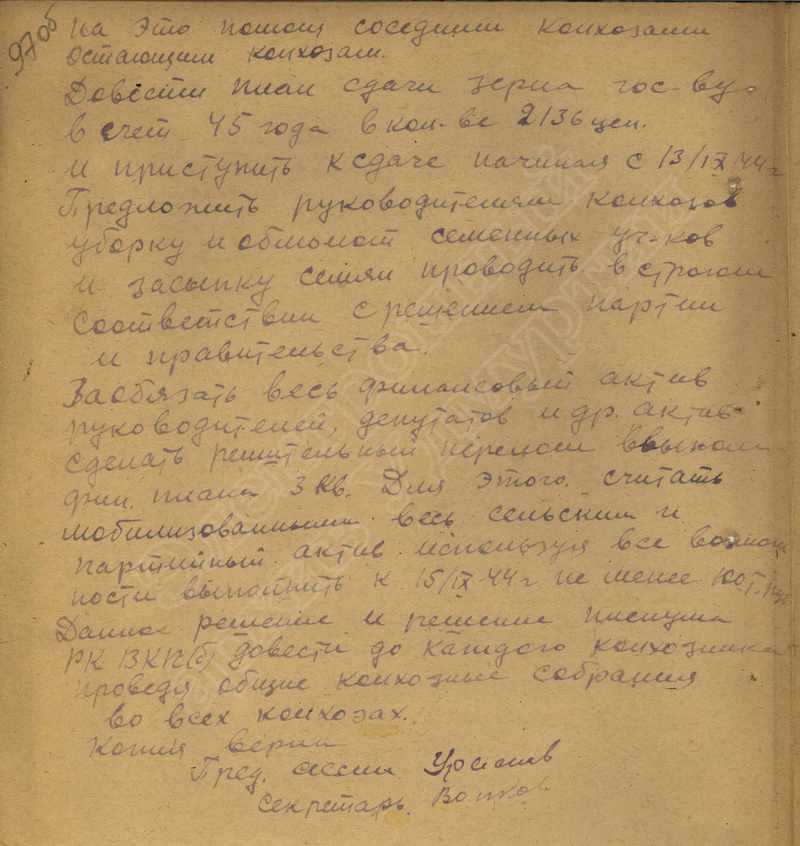 97об
на это помощ соседними колхозами
остающим колхозам.
Довести план сдачи зерна гос-ву
в счет 45 года в кол-ве 2136 цен.
и приступить к сдаче начиная с 13/IX 44 г
Предложить руководителям колхозов
уборку и обмолот семенных уч-ков
и засыпку семян проводить в строгом
соответствии с решением партии
и правительства.
Заобязать весь финансовый актив
руководителей, депутатов и др. актив
сделать решительный перелом в выполн
фин. плана 3 кв. Для этого считать
мобилизованными весь сельский и
партийный актив используя все возмож
ности выполнить к 15/IX 44 г не менее 100 т. руб
Данное решение и решение пленума
РК ВКП(б) довести до каждого колхозника
проведя общие колхозные собрания
во всех колхозах.
Копия верна
Пред. сессии
Секретарь. Волков